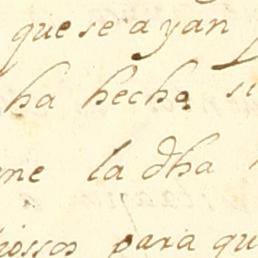 que se ayan
ha hecho si
ne la dha
iossos para qu